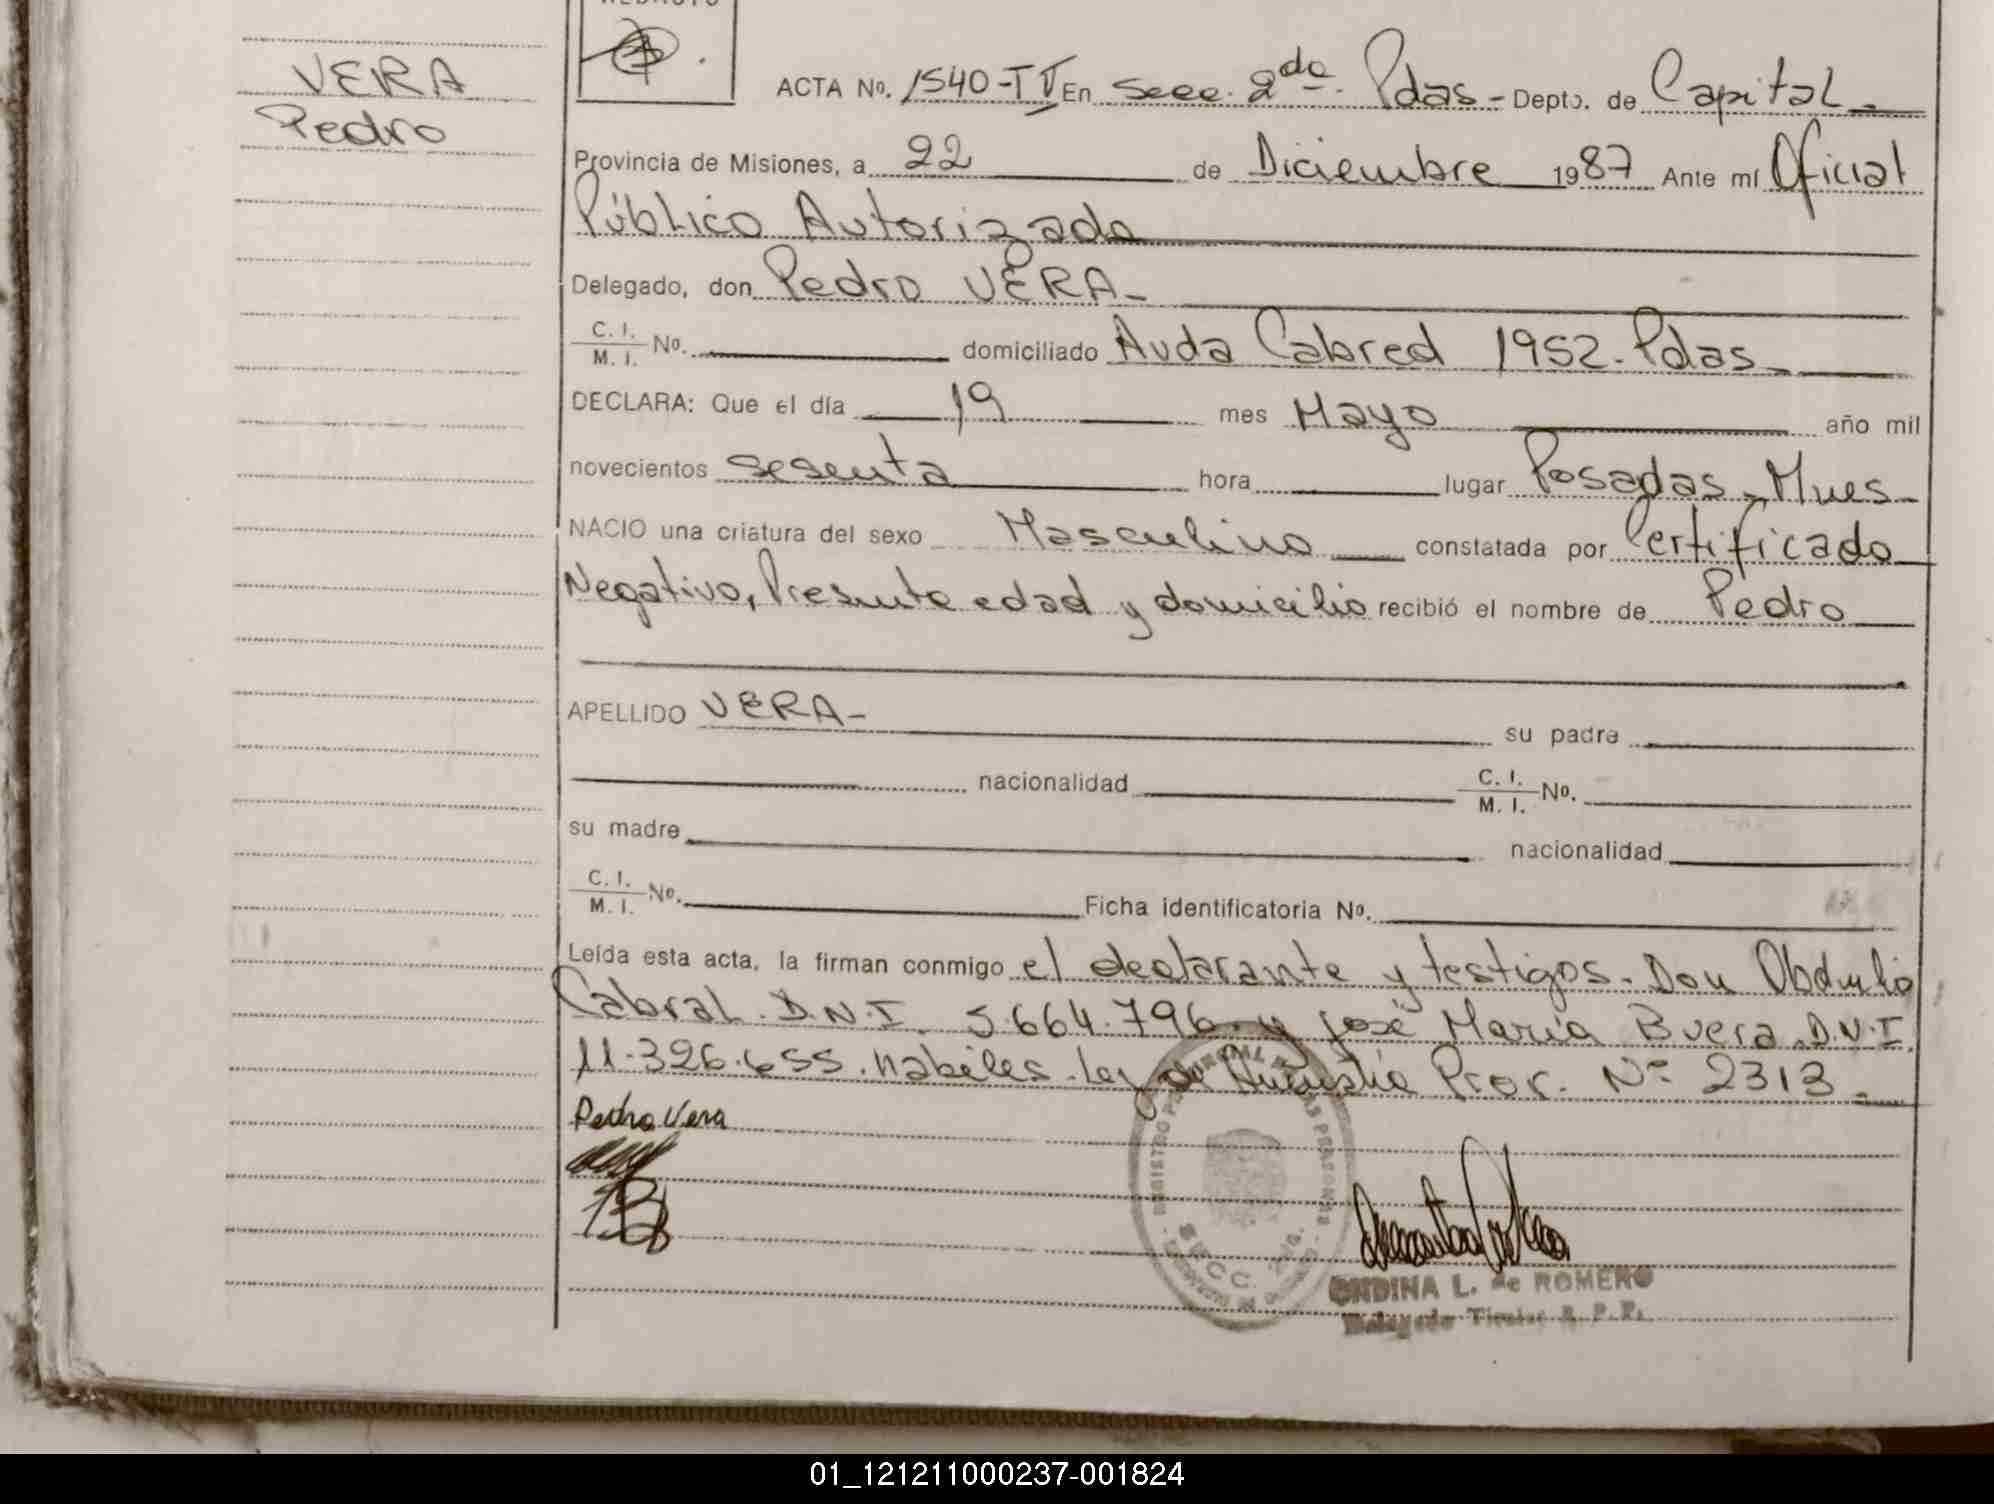 VERA
Pedro
REDACTO
ACTA Nº. 1540-TV En Secc. 2da. Pdas - Depto. de Capital
Provincia de Misiones, a 22 de Diciembre 1987 Ante mí Oficial
Público Autorizado
Delegado, don Pedro VERA -
C. I. / M. I. Nº. domiciliado Avda Cabred 1952. Pdas
DECLARA: Que el día 19 mes Mayo año mil
novecientos sesenta hora lugar Posadas, Mnes
NACIO una criatura del sexo Masculino constatada por Certificado
Negativo, Presunta edad y domicilio recibió el nombre de Pedro
APELLIDO VERA - su padre
nacionalidad C. I. / M. I. Nº.
su madre nacionalidad
C. I. / M. I. Nº. Ficha identificatoria Nº.
Leída esta acta, la firman conmigo el declarante y testigos. Don Obdulio
Cabral. D.N.I. 5.664.796. y José María Buera. D.N.I.
11.326.655. habiles. Ley de Amnistia Pror. Nº 2313
Pedro Vera
SECC.
ONDINA L. de ROMERO
Delegada Titular R. P. P.
01_121211000237-001824